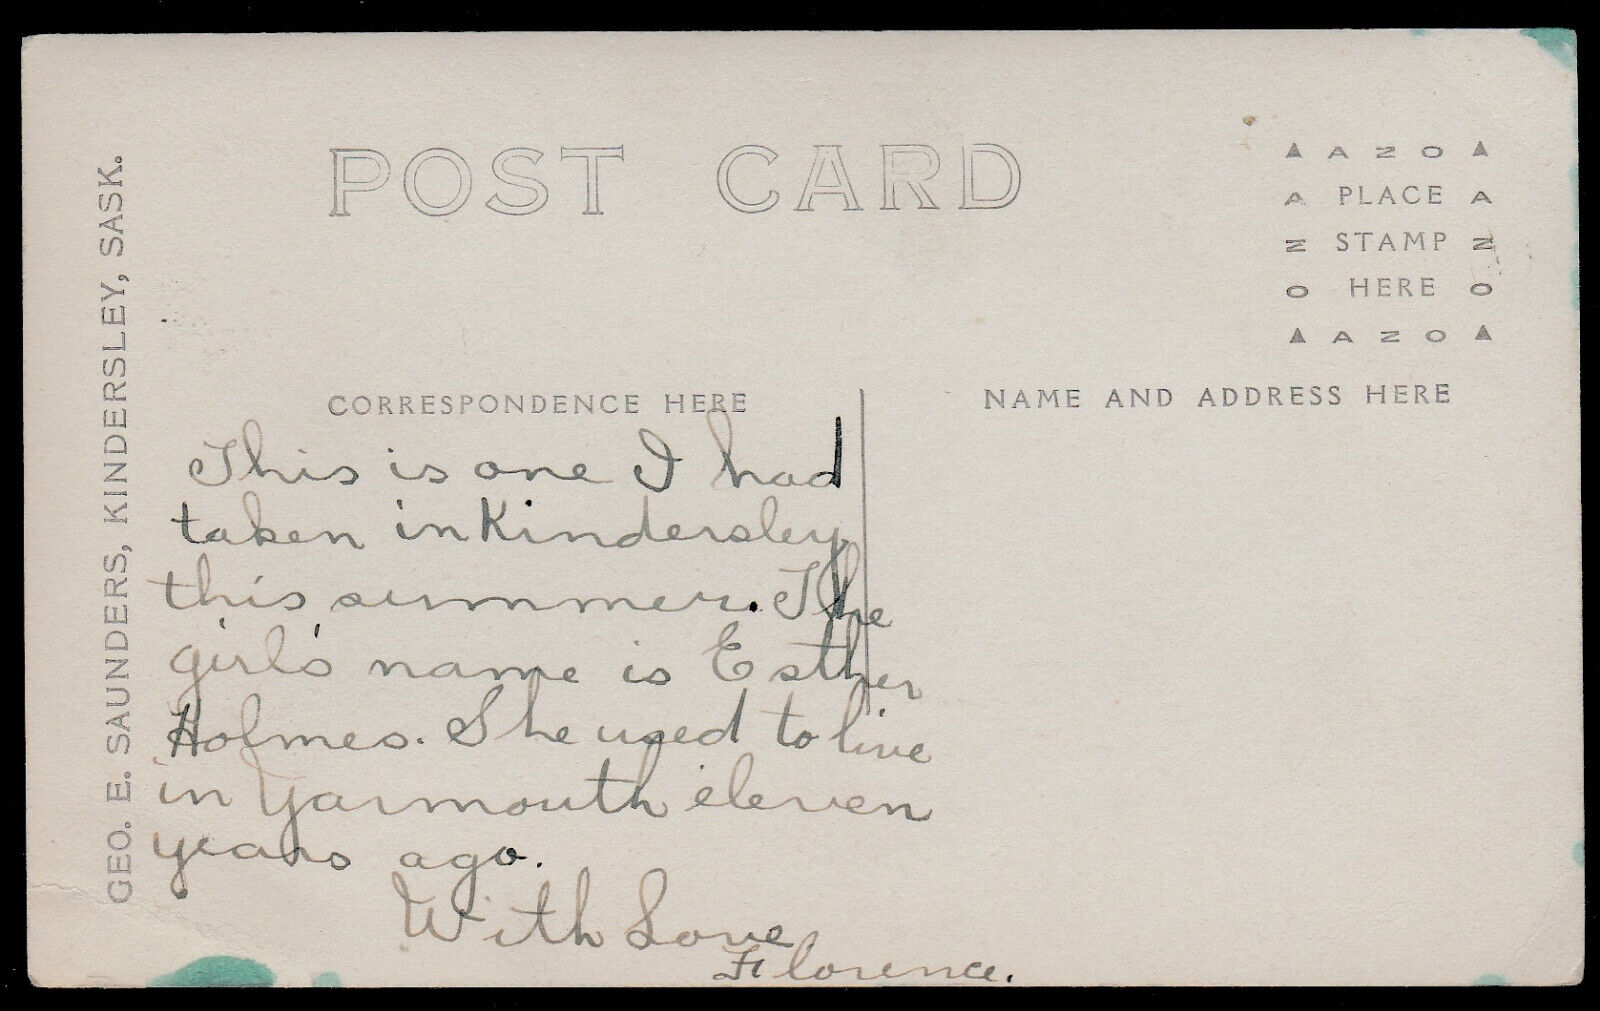 POST CARD
▲ A Z O ▲
A PLACE A
Z STAMP Z
O HERE O
▲ A Z O ▲
CORRESPONDENCE HERE
NAME AND ADDRESS HERE
GEO. E. SAUNDERS, KINDERSLEY, SASK.
This is one I had
taken in Kindersley
this summer. The
girl's name is Esther
Holmes. She used to live
in Yarmouth eleven
years ago.
With Love
Florence.